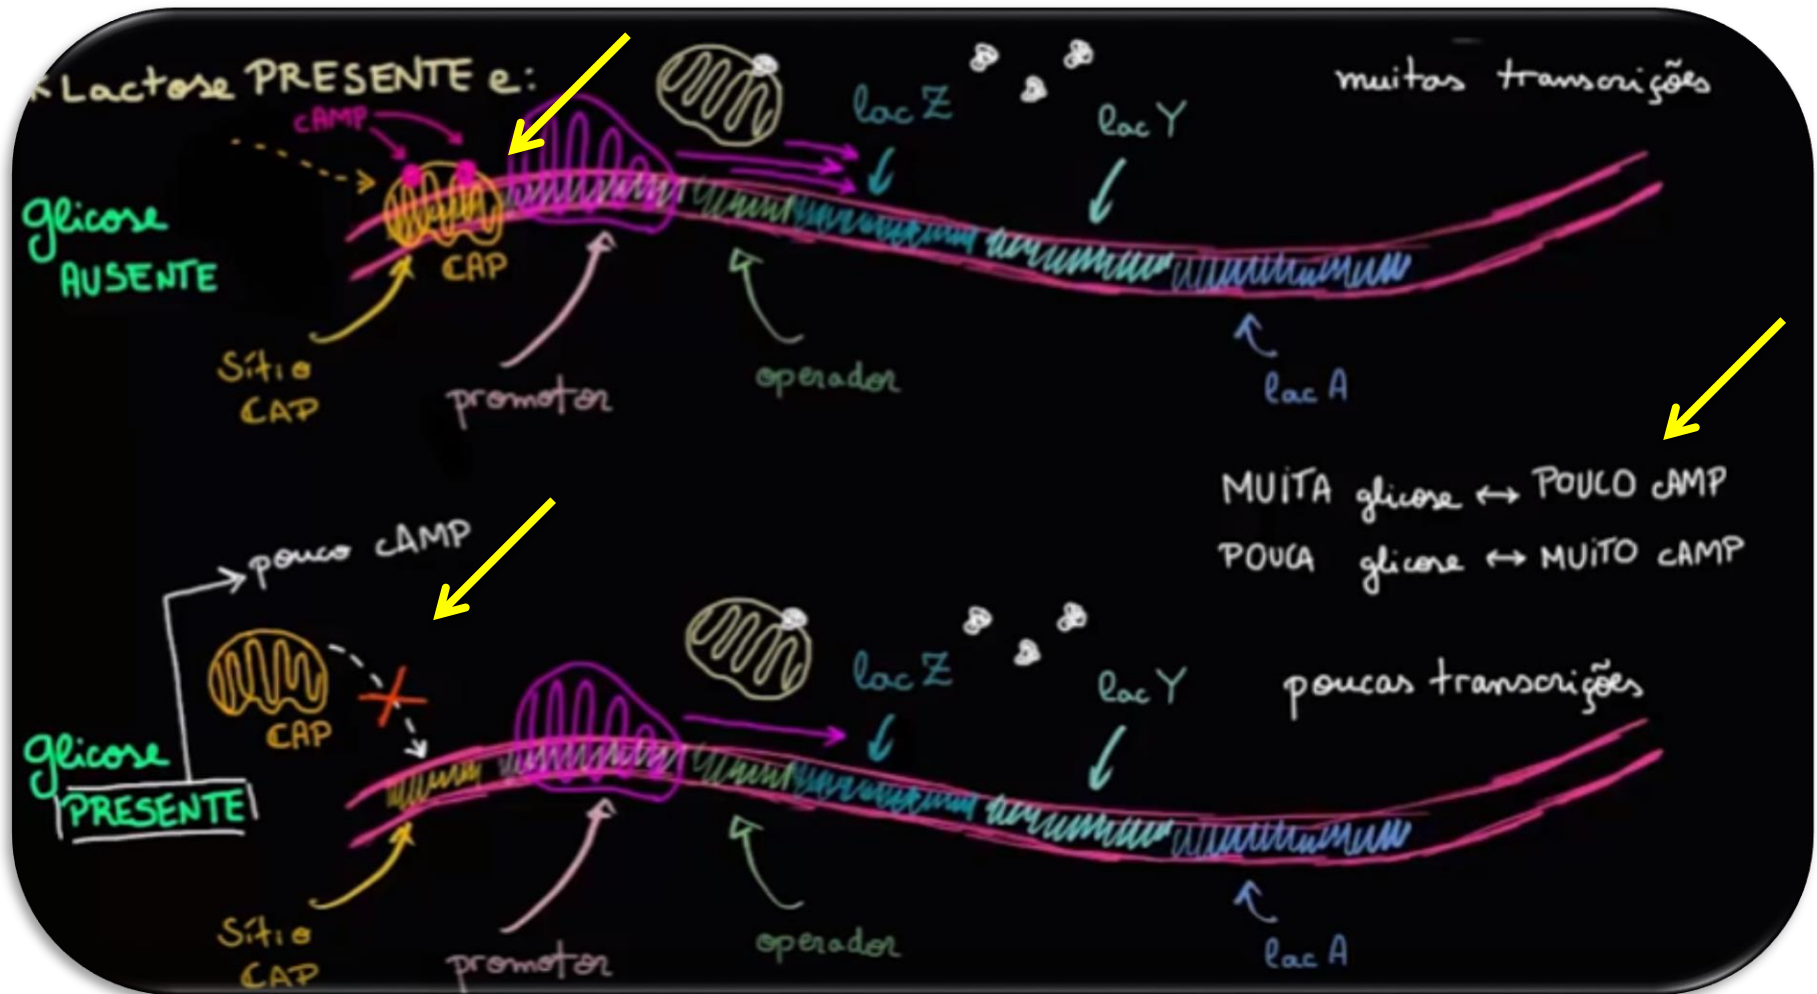 * Lactose PRESENTE e:
muitas transcrições
cAMP
lac Z
lac Y
glicose
AUSENTE
CAP
Sítio
CAP
promotor
operador
lac A
MUITA glicose ↔ POUCO cAMP
POUCA glicose ↔ MUITO cAMP
pouco cAMP
CAP
lac Z
lac Y
poucas transcrições
glicose
PRESENTE
Sítio
CAP
promotor
operador
lac A